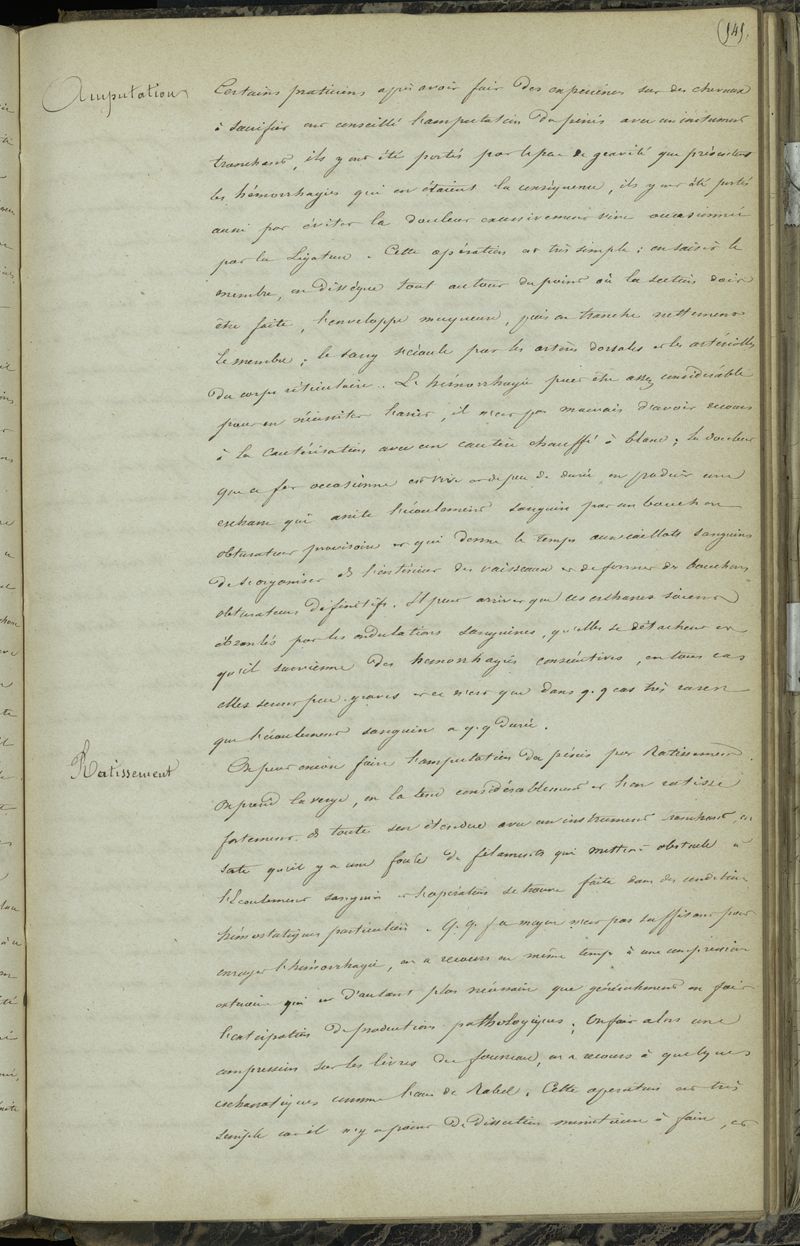 (141)
Amputation
Certains praticiens après avoir fait des expériences sur des chevaux
à sacrifier ont conseillé l'amputation du pénis avec un instrument
tranchant, ils y ont été portés par le peu de gravité que présentent
les hémorrhagies qui en étaient la conséquence, ils y ont été portés
aussi par éviter la douleur excessivement vive occasionnée
par la Ligature. Cette opération est très simple : on saisit le
membre, on dissèque tout autour du point où la section doit
être faite, l'enveloppe muqueuse, puis on tranche nettement
le membre ; le sang s'écoule par les artères dorsales et les artérioles
du corps réticulaire. L'hémorrhagie peut être assez considérable
pour en nécessiter l'arrêt, il n'est pas mauvais d'avoir recours
à la Cautérisation avec un cautère chauffé à blanc ; la douleur
que ce fer occasionne est vive et de peu de durée, on produit une
eschare qui arrête l'écoulement sanguin par un bouchon
obturateur provisoire et qui donne le temps aux caillots sanguins
de s'organiser ds l'intérieur des vaisseaux et de former des bouchons
obturateurs définitifs. Il peut arriver que ces eschares soient
ébranlés par les ondulations sanguines, qu'elles se détachent et
qu'il survienne des hémorrhagies consécutives, en tous cas
elles seront peu graves et ce n'est que dans q.q cas très rares
que l'écoulement sanguin a q.q durée.
Ratissement
On peut encore faire l'amputation du pénis par Ratissement.
On prend la verge, on la tend considérablement et l'on ratisse
fortement ds toute son étendue avec un instrument tranchant, en
sorte qu'il y a une foule de filaments qui mettent obstacle à
l'écoulement sanguin et l'opération se trouve faite dans des conditions
hémostatiques particulières. Q.q. f ce moyen n'est pas suffisant pour
enrayer l'hémorrhagie, on a recours en même temps à une compression
extérieure qui est d'autant plus nécessaire que généralement on fait
l'extirpation de productions pathologiques ; on fait alors une
compression sur les lèvres du fourreau, on a recours à quelques
escharotiques comme l'eau de Rabel. Cette opération est très
simple car il n'y a point de dissection minutieuse à faire, et